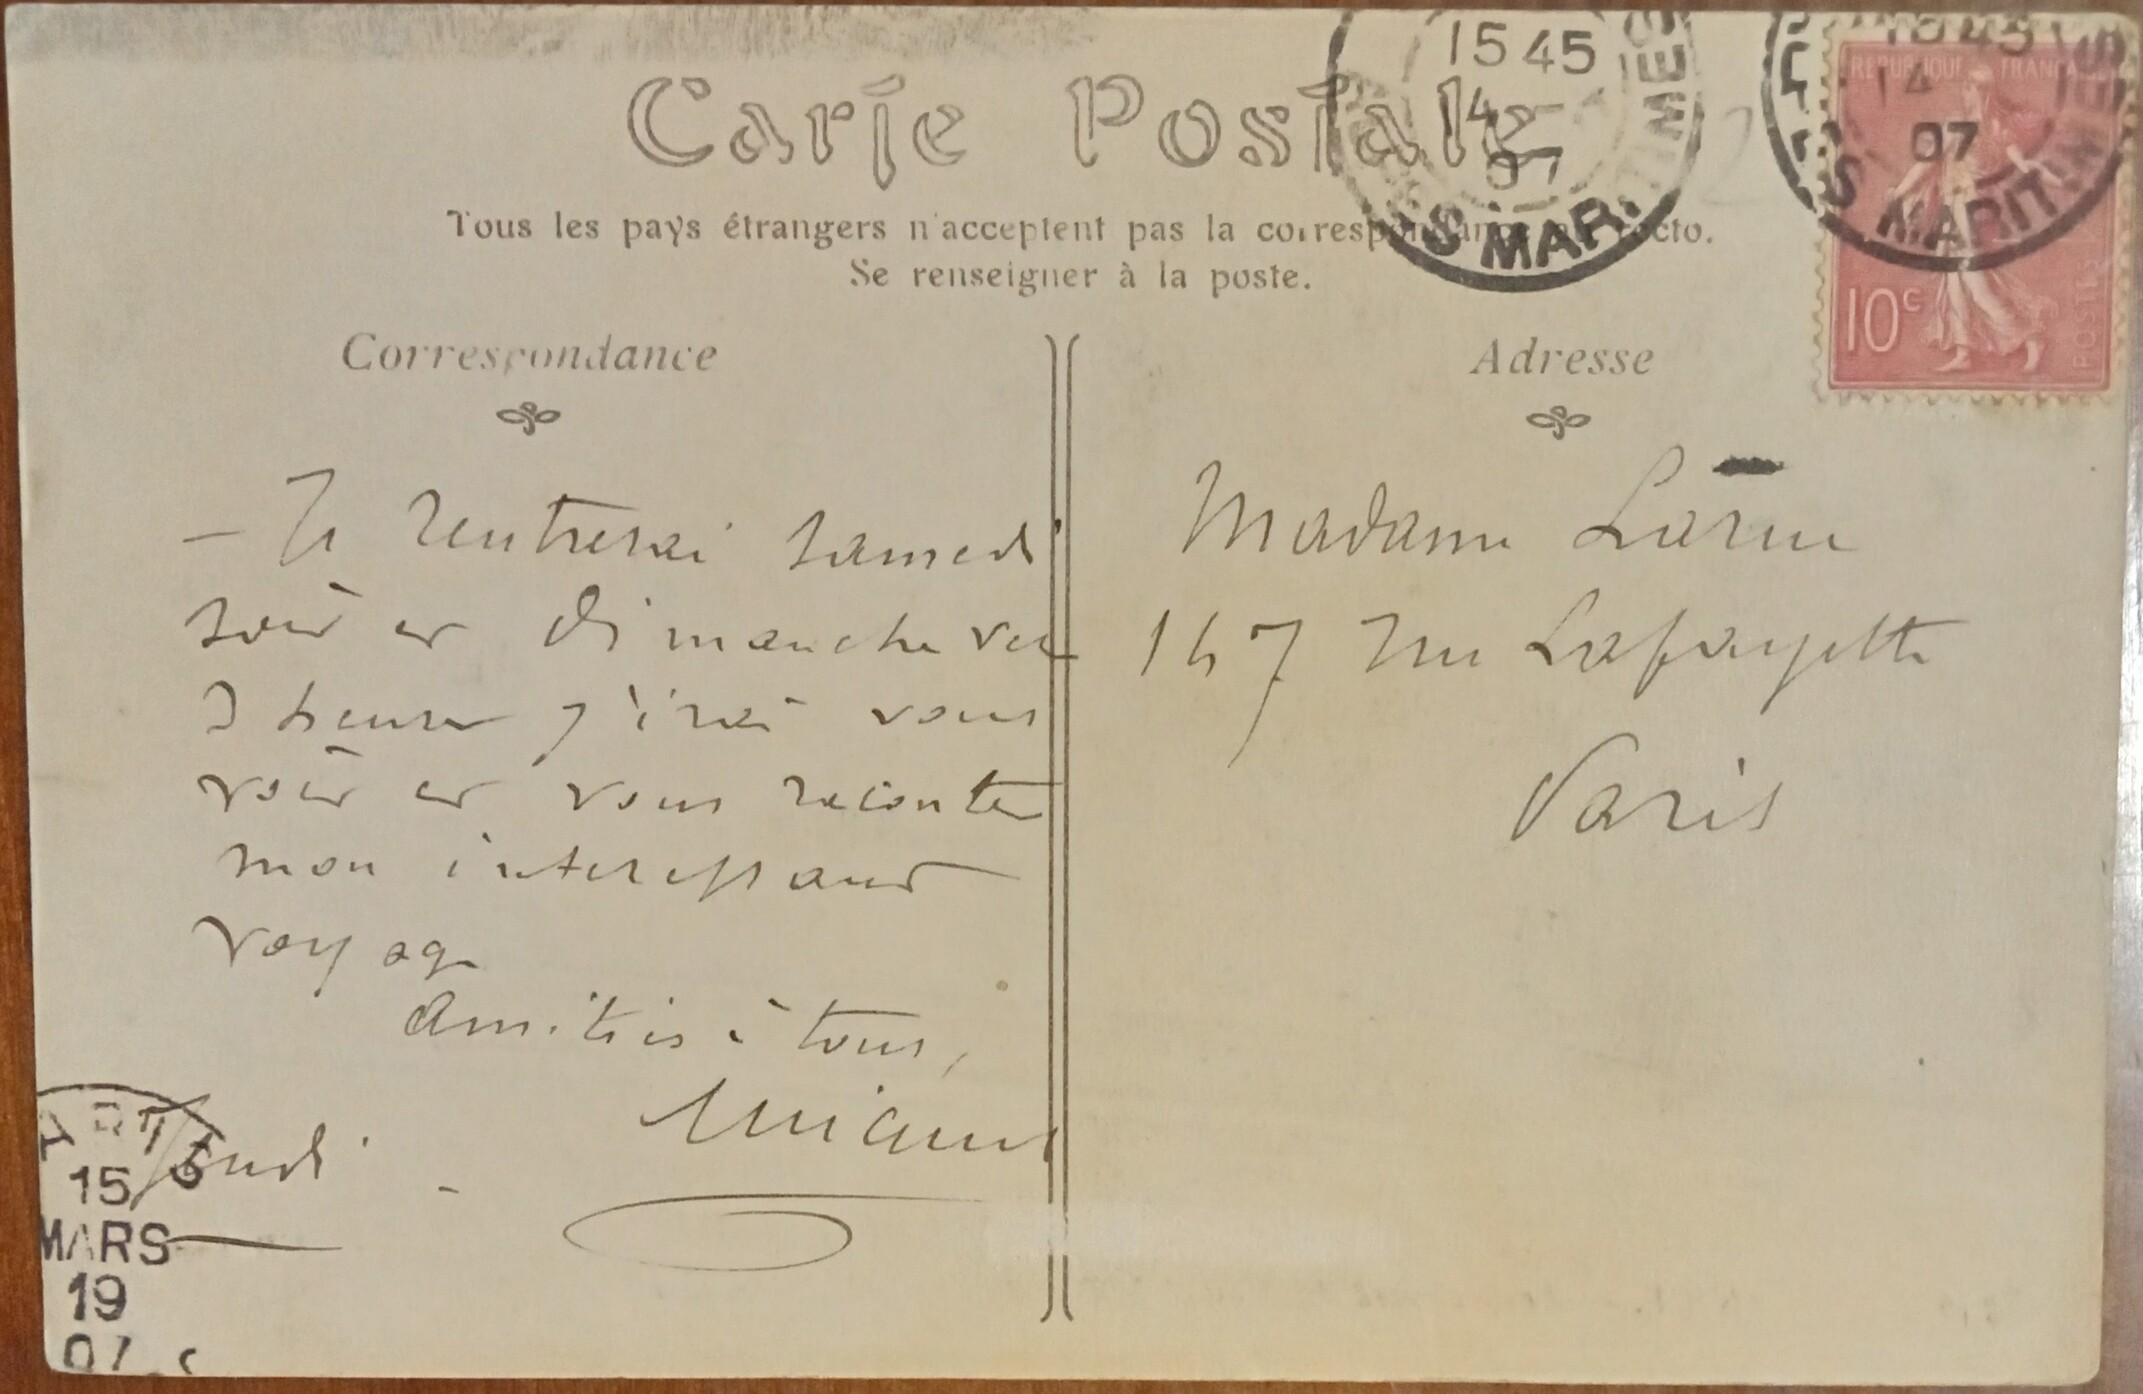 Carte Postale
Tous les pays étrangers n'acceptent pas la correspondance au recto.
Se renseigner à la poste.
15 45
14
07
S MARITIMES
REPUBLIQUE FRANÇAISE
15 45
14
07
S MARITIMES
10c
POSTES
Correspondance
Adresse
– Je rentrerai samedi
soir et dimanche vers
heures j'irai vous
voir et vous raconter
mon interessant
voyage
Amitiés à tous,
Jeudi
Madame
147 rue Lafayette
Paris
PARIS
15
MARS
19
07